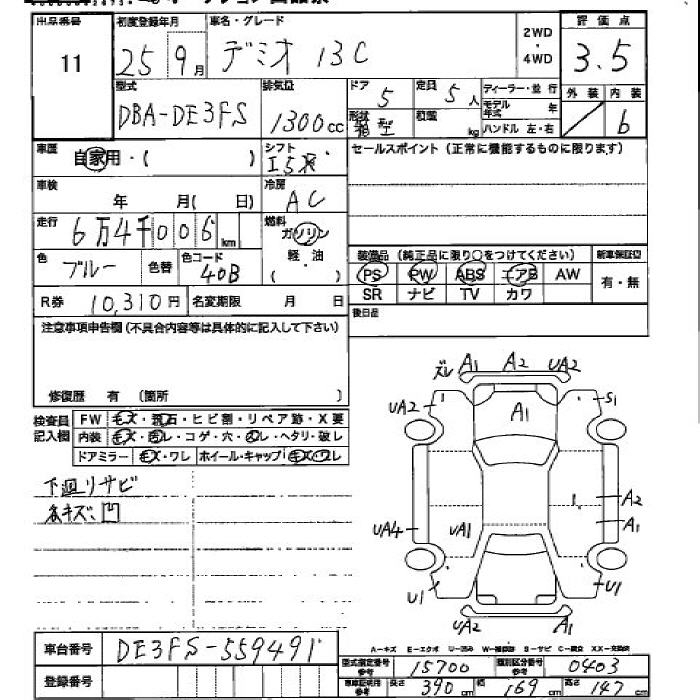 出品番号 初度登録年月 車名・グレード 2WD・4WD 評価点
11 25 9月 デミオ 13C 3.5
型式 排気量 ドア 定員 ディーラー・並行 外装 内装
DBA-DE3FS 1300cc 5 5人 モデル年式 年
形状 箱型 積載 kg ハンドル 左・右 / 6
車歴 自家用・( ) シフト I5 セールスポイント(正常に機能するものに限ります)
車検 年 月( 日) 冷房 AC
走行 6万4千006km 燃料 ガソリン
色 ブルー 色替 色コード 40B 軽・油 ( )
装備品(純正品に限り○をつけてください) 新車保証書
PS PW ABS エアB AW 有・無
SR ナビ TV カワ
R券 10,310円 名変期限 月 日 後日品
注意事項申告欄(不具合内容等は具体的に記入して下さい)
修復歴 有 (箇所 )
検査員記入欄 FW 毛ズ・飛石・ヒビ割・リペア跡・X要
内装 毛ズ・汚レ・コゲ・穴・スレ・ヘタリ・破レ
ドアミラー 毛ズ・ワレ ホイール・キャップ 毛ズ・ワレ
下廻リサビ
各キズ、凹
ズレ A1 A2 UA2
UA2 A1 S1
UA4 UA1 1. A2
A1
U1 U1
UA2 A1
車台番号 DE3FS-559491
登録番号
A-キズ E-エクボ U-凹み W-補修跡 S-サビ C-腐食 XX-交換済
型式指定番号 参考 15700 類別区分番号 参考 0403
車庫証明用 参考 長さ 390cm 幅 169cm 高さ 147cm